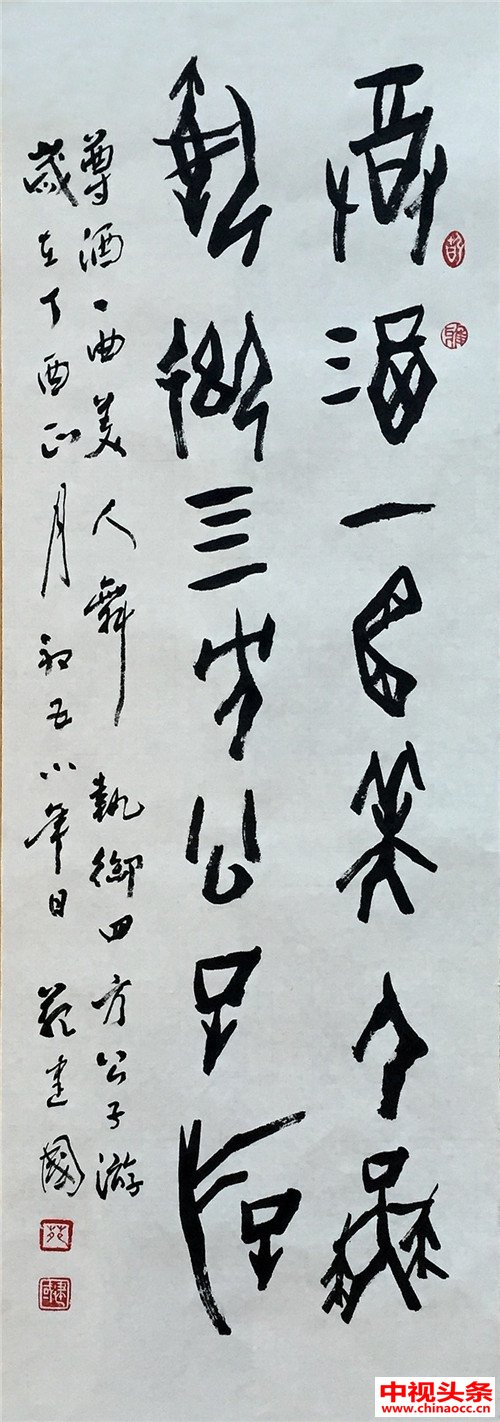 尊酒一曲美人舞
執御四方公子游
尊酒一曲美人舞 執御四方公子游
歲在丁酉正月初五小年日 苑建國
苑
建國
中视头条
www.chinaocc.cn